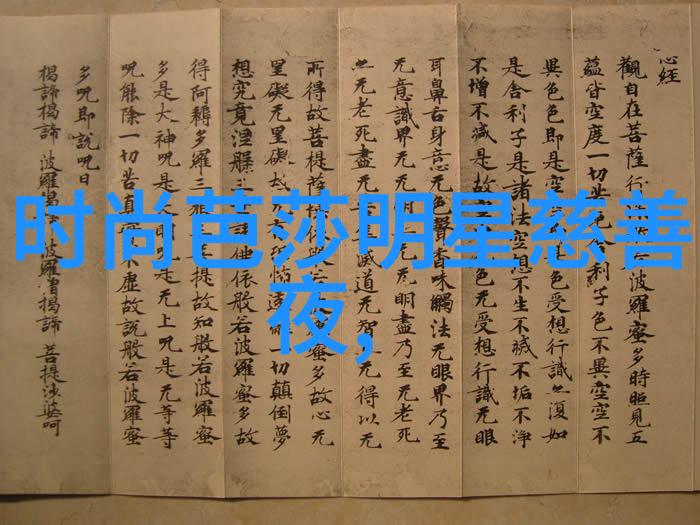 时尚芭莎明星慈善
夜,
心经
觀自在菩薩行波羅蜜多時照見五
蘊皆空度一切苦厄舍利子色不異空空不
異色色即是空是色受想行識亦復如
是舍利子是諸法空想不生不滅不垢不淨
不增不減是故空色无受想行識无眼
耳鼻舌身意无色聲香味觸法无眼界乃至
无意識界无无明无明盡乃至无老死
亦无老死盡无滅道无智得以无
所得故菩提薩依般蜜多故心无
罣礙无罣礙故怖遠一切顛倒夢
想究竟涅槃三諸佛依般若波羅蜜多故
得阿耨多羅三藐菩提故知般若波羅蜜
多是大神呪是大明呪是无上呪是无等等
呪能除一切苦真不虛故說般若波羅蜜
多呪即說呪曰
揭諦揭諦 波羅揭諦 波羅僧揭諦 菩提沙婆呵